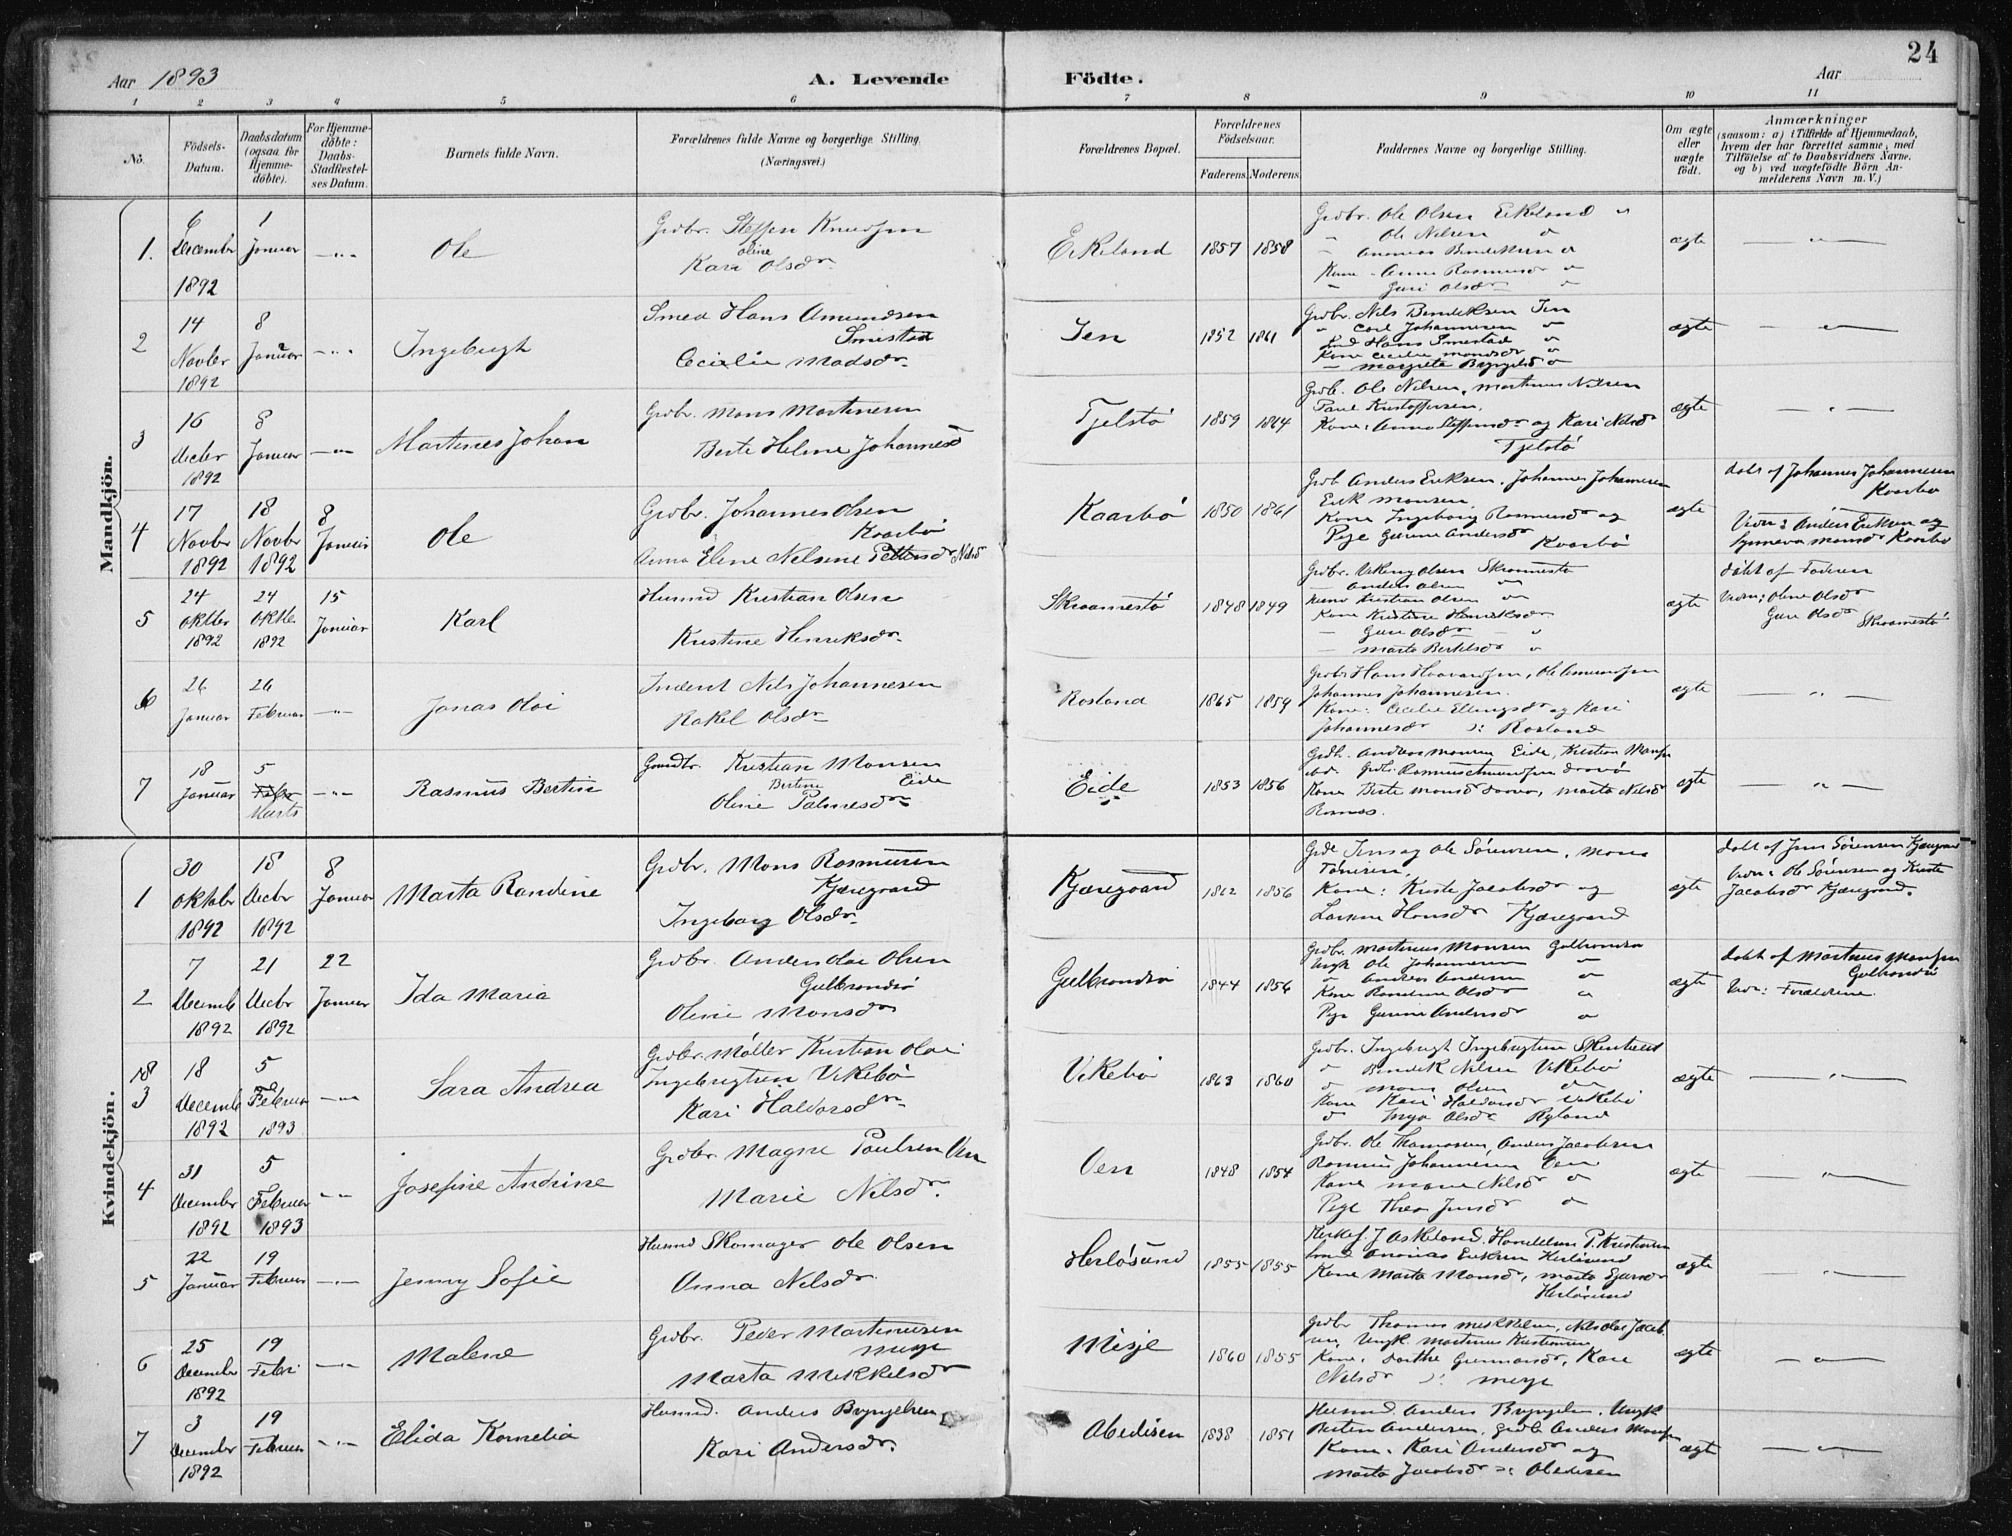 24
Aar 1893
A. Levende
Födte.
Aar
1 2 3 4 5 6 7 8 9 10 11
No.
Födsels-Datum.
Daabsdatum (ogsaa for Hjemme-döbte).
For Hjemme-döbte: Daabs-Stadfæstel-ses Datum.
Barnets fulde Navn.
Forældrenes fulde Navne og borgerlige Stilling.
(Næringsvei.)
Forældrenes Bopæl.
Forældrenes Födselsaar.
Faderens. Moderens.
Faddernes Navne og borgerlige Stilling.
Om ægte eller uægte födt.
Anmærkninger
(saasom: a) i Tilfælde af Hjemmedaab,
hvem der har forrettet samme, med
Tilföielse af to Daabsvidners Navne,
og b) ved uægtefödte Börn An-
melderens Navn m. V.)
Mandkjön.
1. 6 December 1892
1 Januar
Ole
Grdbr. Steffen Knudsen
Oline
Kari Olsdr.
Eikeland
1857 1858
Grdbr. Ole Olsen Eikeland
Ole Nilsen
Kone Anna Rasmusdr
Guri Olsdr
ægte
2 14 Novbr 1892
8 Januar
Ingebrigt
Smed Hans Amundsen
Smestad
Cecilie Madsdr.
Jen
1852 1861
Grdbr. Nils Bendiksen Jen
Carl Johannesen
Smd Hans Smestad
Kone Cecilie
ægte
3 16 Decbr 1892
8 Januar
Martines Johan
Grdbr. Mons Martinesen
Berte Helene Johannesd
Tjelstø
1859 1864
Grdb. Ole Nilsen, Martinus Nilsen
Paul Kristoffersen,
Kone: Anna Steffensdr og Kari Nilsd
Tjelstø
ægte
4 17 Novbr 1892
18 Novbr 1892
8 Januar
Ole
Grdbr. Johannes Olsen
Kaarbø
Anna Eline Nelsine Pettersdr Nilsd
Kaarbø
1850 1861
Grdb Anders Eriksen, Johannes Johannesen
Erik Monsen
Kone Ingeborg Rasmusdr og
Pige Gunne Andersdr
Kaarbø
ægte
døbt af Johannes Johannesen
Kaarbø
Vidn: Anders Eriksen og
Synneva Monsdr Kaarbø
5 24 Oktbr 1892
24 Oktbr 1892
15 Januar
Karl
Husmd Kristian Olsen
Kristine Henriksdr.
Skraamestø
1848 1849
Grdbr. Viking Olsen Skraamestø
Anders Olsen
Kristian Olsen
Kone Kristine Henriksdr
Guri Olsdr
Marta Bertelsdr
ægte
døbt af Faderen
Vidn: Oline Olsdr
Guri Olsd Skraamestø
6 26 Januar
26 Februar
Jonas Olai
Inderst Nils Johannesen
Rakel Olsdr
Rosland
1865 1859
Ole Amundsen
Johannes Johannesen.
Kone: Cecilie Ellingsdr og Kari
Johannesdr Rosland
ægte
7 18 Januar
5 Marts
Rasmus Bertin
Kristian Monsen
Eide
Bertine
Oline Palmesdr
Eide
1853 1856
Monsen Eide, Kristian
Kone Berte Monsdr
Marta Nilsd
ægte
Kvindekjön.
1 30 Oktober 1892
18 Decbr 1892
8 Januar
Marta Randine
Grdbr. Mons Rasmussen
Kjæregaard
Ingeborg Olsdr.
Kjæregaard
1862 1856
Jens og Ole Sørensen, Mons
Tønesen,
Kone: Kirste Jacobsdr og
Hansdr Kjæregaard
ægte
døbt af Jens Sørensen Kjæregaard
Vidn: Ole Sørensen og Kirste
Jacobsdr Kjæregaard.
2 7 Decemb 1892
21 Decbr 1892
22 Januar
Ida Maria
Grdbr. Anders Olai Olsen
Gulbrandsø
Oline Monsdr
Gulbrandsø
1844 1856
Grdbr. Martinus Monsen Gulbrandsø
Ungk Ole Johannesen
Anders Andersen
Kone Randine Olsdr
Pige Gunne Andersdr
ægte
døbt af Martinus Monsen
Gulbrandsø
Vidn: Forældrene
18
3 18 Decemb 1892
5 Februar 1893
Sara Andrea
Grdbr. Møller Kristian Olai
Ingebrigtsen Vikebø
Kari Haldorsdr.
Vikebø
1863 1860
Grdbr. Ingebrigt Ingebrigtsen
Bendik Nilsen Vikebø
Mons Olsen
Kone Kari Haldorsdr Vikebø
Inga Olsdr Ryland
ægte
4 31 December 1892
5 Februar 1893
Josefine Andrine
Grdbr. Magne Paulsen Uen
Marie Nilsdr.
Uen
1848 1854
Grdbr. Ole Thomassen, Anders Jacobsen
Rasmus Johannesen Uen
Kone Marie Nilsdr
Pige Thea Jensdr
ægte
5 22 Januar
19 Februar
Jenny Sofie
Husmd Skomager Ole Olsen
Anna Nilsdr.
Herløsund
1855 1855
Kirkes. J Askeland. Handelsm P. Kristensen
Eriksen Herløsund
Kone Marta Monsdr, Marta
Herløsund
ægte
6 25 December 1892
19 Febr
Malene
Grdbr. Peder Martinusen
Misje
Marta Mikkelsdr
Misje
1860 1855
Grdbr Thomas Mikkelsen, Nils Olai Jacob-
sen, Ungk. Martinus Kristensen
Kone: Dorthe Gunnarsdr, Kari
Nilsdr Misje
ægte
7 3 December 1892
19 Februar
Elida Kornelia
Husmd. Anders Brynjelsen
Kari Andersdr.
Abedisen
1838 1851
Husmd. Anders Brynjelsen, Ungk
Andersen, Grdb Anders Monsen
Kone. Kari Andersdr og
Marta Jacobsdr Obedisen
ægte